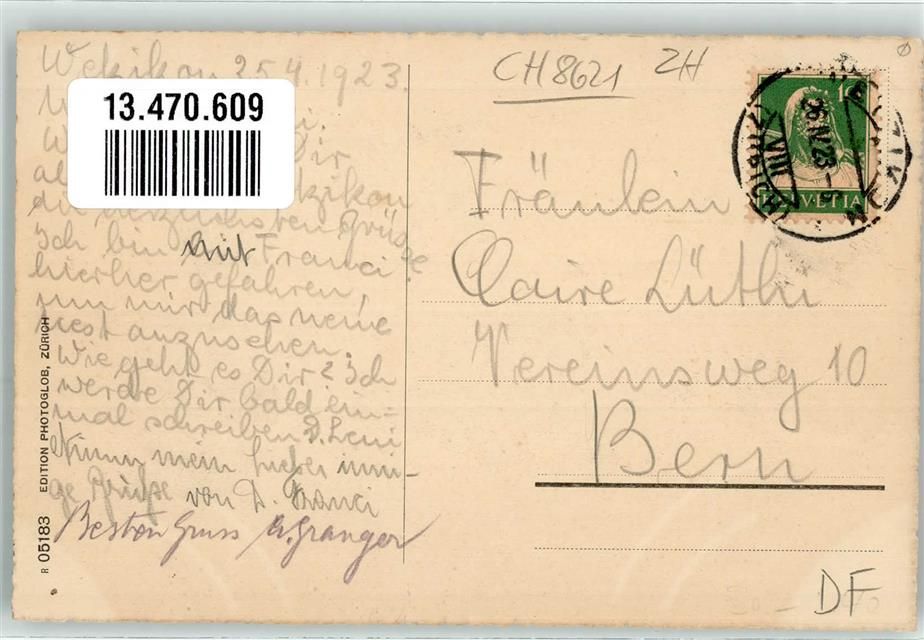 Wetzikon 25.4.1923.
13.470.609
Dir
die herzlichsten Grüsse
Ich bin mit Franci
hierher gefahren,
um mir das neue
Nest anzusehen.
Wie geht es Dir? Ich
werde Dir bald ein=
mal schreiben D. Leni
Nimm mein lieber inni-
ge Grüsse von D. Franci
Besten Gruss A. Granger
R 05183 EDITION PHOTOGLOB, ZÜRICH
CH8621 ZH
10
HELVETIA
26.IV.23
VIII
Fräulein
Claire Lüthi
Vereinsweg 10
Bern
DF